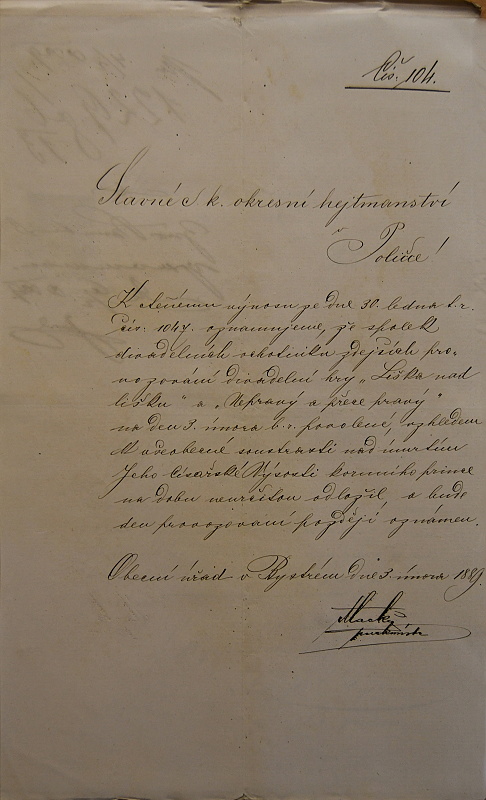 Čís. 104.
Slavné c. k. okresní hejtmanství
v Poličce!
K ctěnému výnosu ze dne 30. ledna t.r.
čís. 1047. oznamujeme, že spolek
divadelních ochotníků zdejších pro-
vozování divadelní hry „Liška nad
lišku" a „Nepravý a přece pravý"
na den 3. února b. r. povolené, vzhledem
k všeobecné soustrasti nad úmrtím
Jeho císařské Výsosti korunního prince
na dobu neurčitou odložil, a bude
den provozování později oznámen.
Obecní úřad v Bystrém dne 3. února 1889.
purkmistr